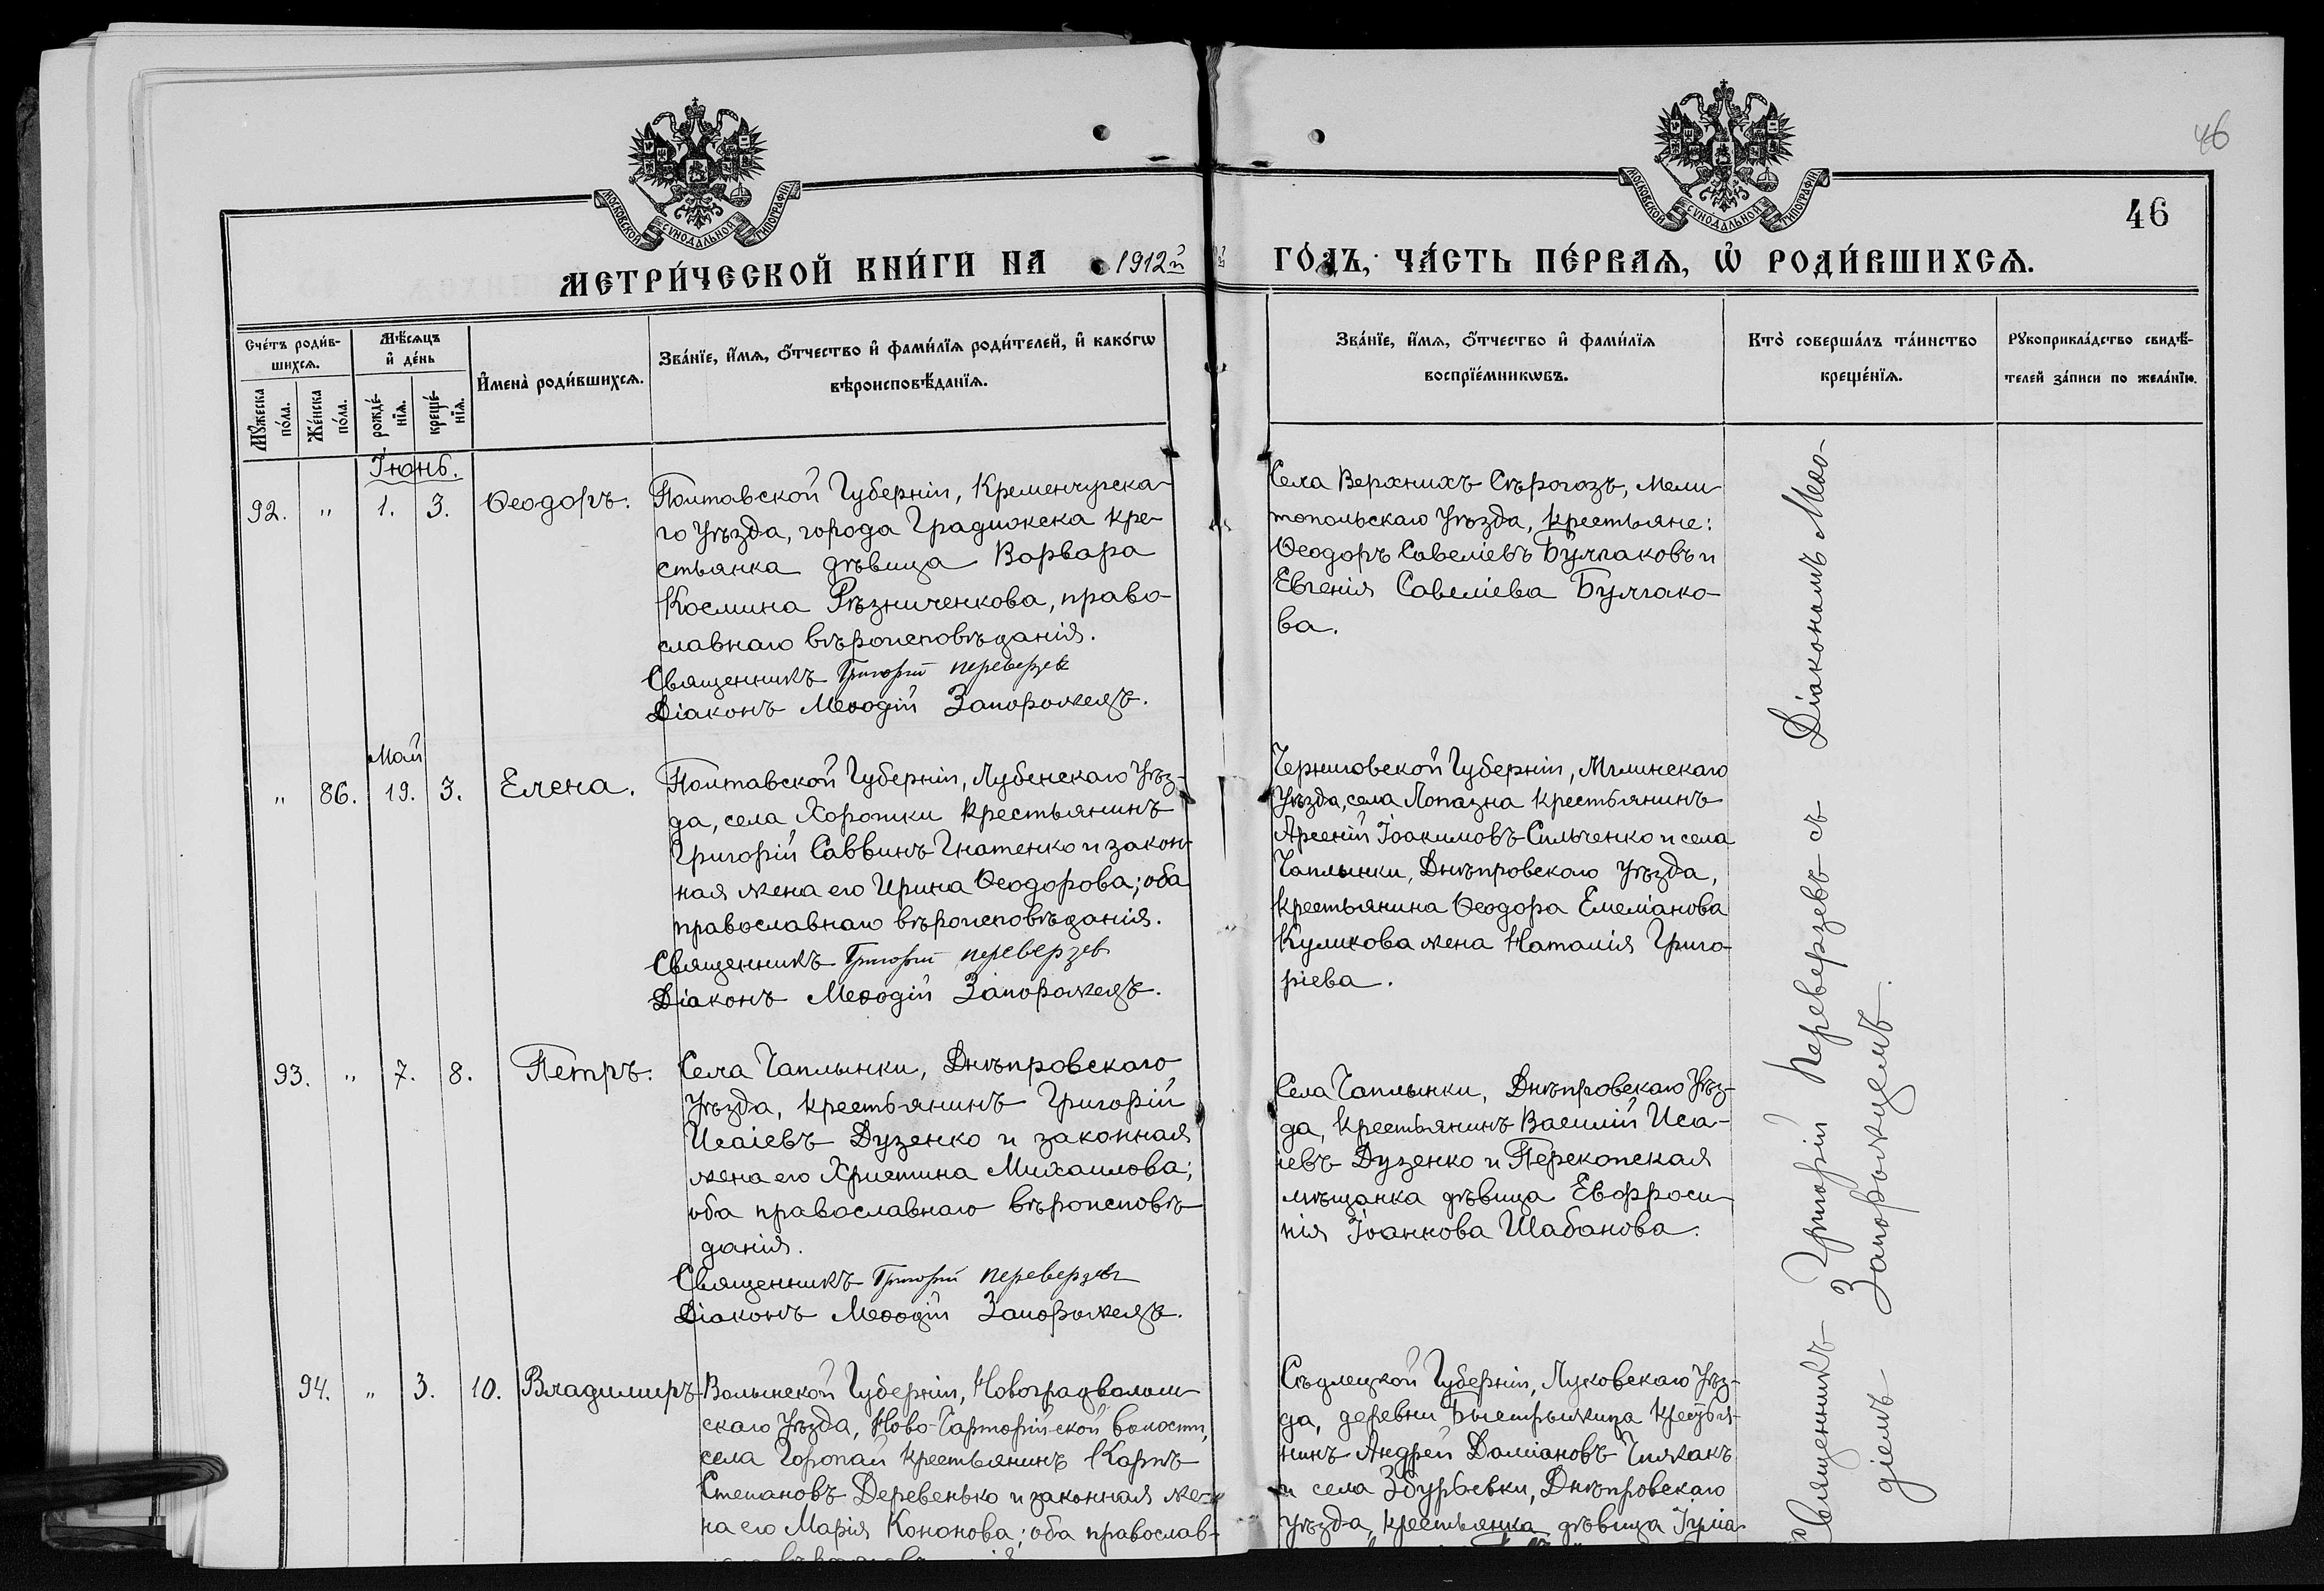 МОСКОВСКОЙ СѴНОДАЛЬНОЙ ТИПОГРАФІИ
МОСКОВСКОЙ СѴНОДАЛЬНОЙ ТИПОГРАФІИ
46
46
МЕТРИ́ЧЕСКОЙ КНИ́ГИ НА 1912й
ГО́ДЪ, ЧА́СТЬ ПЕ́РВАѦ, Ѡ҆ РОДИ́ВШИХСѦ.
Сче́тъ роди́в-
шихсѧ.
Мꙋ́жеска по́ла.
Же́нска по́ла.
Мѣ́сѧцъ
и҆ де́нь
рожде́-нїѧ.
креще́-нїѧ.
И҆мена̀ роди́вшихсѧ.
Зва́нїе, и҆́мѧ, ѻ҆́тчество и҆ фами́лїѧ роди́телей, и҆ како́гѡ
вѣроисповѣ́данїѧ.
Зва́нїе, и҆́мѧ, ѻ҆́тчество и҆ фами́лїѧ
воспрїе́мникѡвъ.
Кто̀ соверша́лъ та́инство
креще́нїѧ.
Рꙋкоприкла́дство свидѣ́-
телей за́писи по жела́нїю.
Іюнь.
92. " 1. 3. Ѳеодоръ.
Полтавской Губерніи, Кременчугска-
го Уѣзда, города Градижска кре-
стьянка дѣвица Варвара
Космина Рѣзниченкова, право-
славнаго вѣроисповѣданія.
Священникъ Григорій Переверзевъ
Діаконъ Меѳодій Запорожецъ.
Села Верхнихъ Сѣрогозъ, Мели-
топольскаго Уѣзда, крестьяне:
Ѳеодоръ Савеліевъ Булгаковъ и
Евгенія Савеліева Булгако-
ва.
Май
" 86. 19. 3. Елена.
Полтавской Губерніи, Лубенскаго Уѣз-
да, села Хоротки крестьянинъ
Григорій Саввинъ Гнатенко и закон-
ная жена его Ирина Ѳеодорова; оба
православнаго вѣроисповѣданія.
Священникъ Григорій Переверзев
Діаконъ Меѳодій Запорожецъ.
Черниговской Губерніи, Мглинскаго
Уѣзда, села Лопазна крестьянинъ
Арсеній Іоакимовъ Сильченко и села
Чаплынки, Днѣпровскаго Уѣзда,
крестьянина Ѳеодора Емеліанова
Куликова жена Наталія Григо-
ріева.
93. " 7. 8. Петръ.
Села Чаплынки, Днѣпровскаго
Уѣзда, крестьянинъ Григорій
Исаіевъ Дузенко и законная
жена его Христина Михаилова;
оба православнаго вѣроисповѣ-
данія.
Священникъ Григорій Переверзевъ
Діаконъ Меѳодій Запорожецъ.
Села Чаплынки, Днѣпровскаго Уѣз-
да, крестьянинъ Василій Иса-
іевъ Дузенко и Перекопская
мѣщанка дѣвица Евфроси-
нія Іоаннова Шабанова.
94. " 3. 10. Владимиръ
Волынской Губерніи, Новоградволын-
скаго Уѣзда, Ново-Чарторійской волости,
села Горопай крестьянинъ Карпъ
Степановъ Деревенько и законная же-
на его Марія Кононова; оба православ-
Сѣдлецкой Губерніи, Луковскаго Уѣз-
да, деревни Быстржица крестья-
нинъ Андрей Даміановъ Чижакъ
и села Збурьевки, Днѣпровскаго
Уѣзда, крестьянка дѣвица Іуліа-
Священникъ Григорій Переверзевъ съ Діакономъ Меѳо-
діемъ Запорожцемъ.